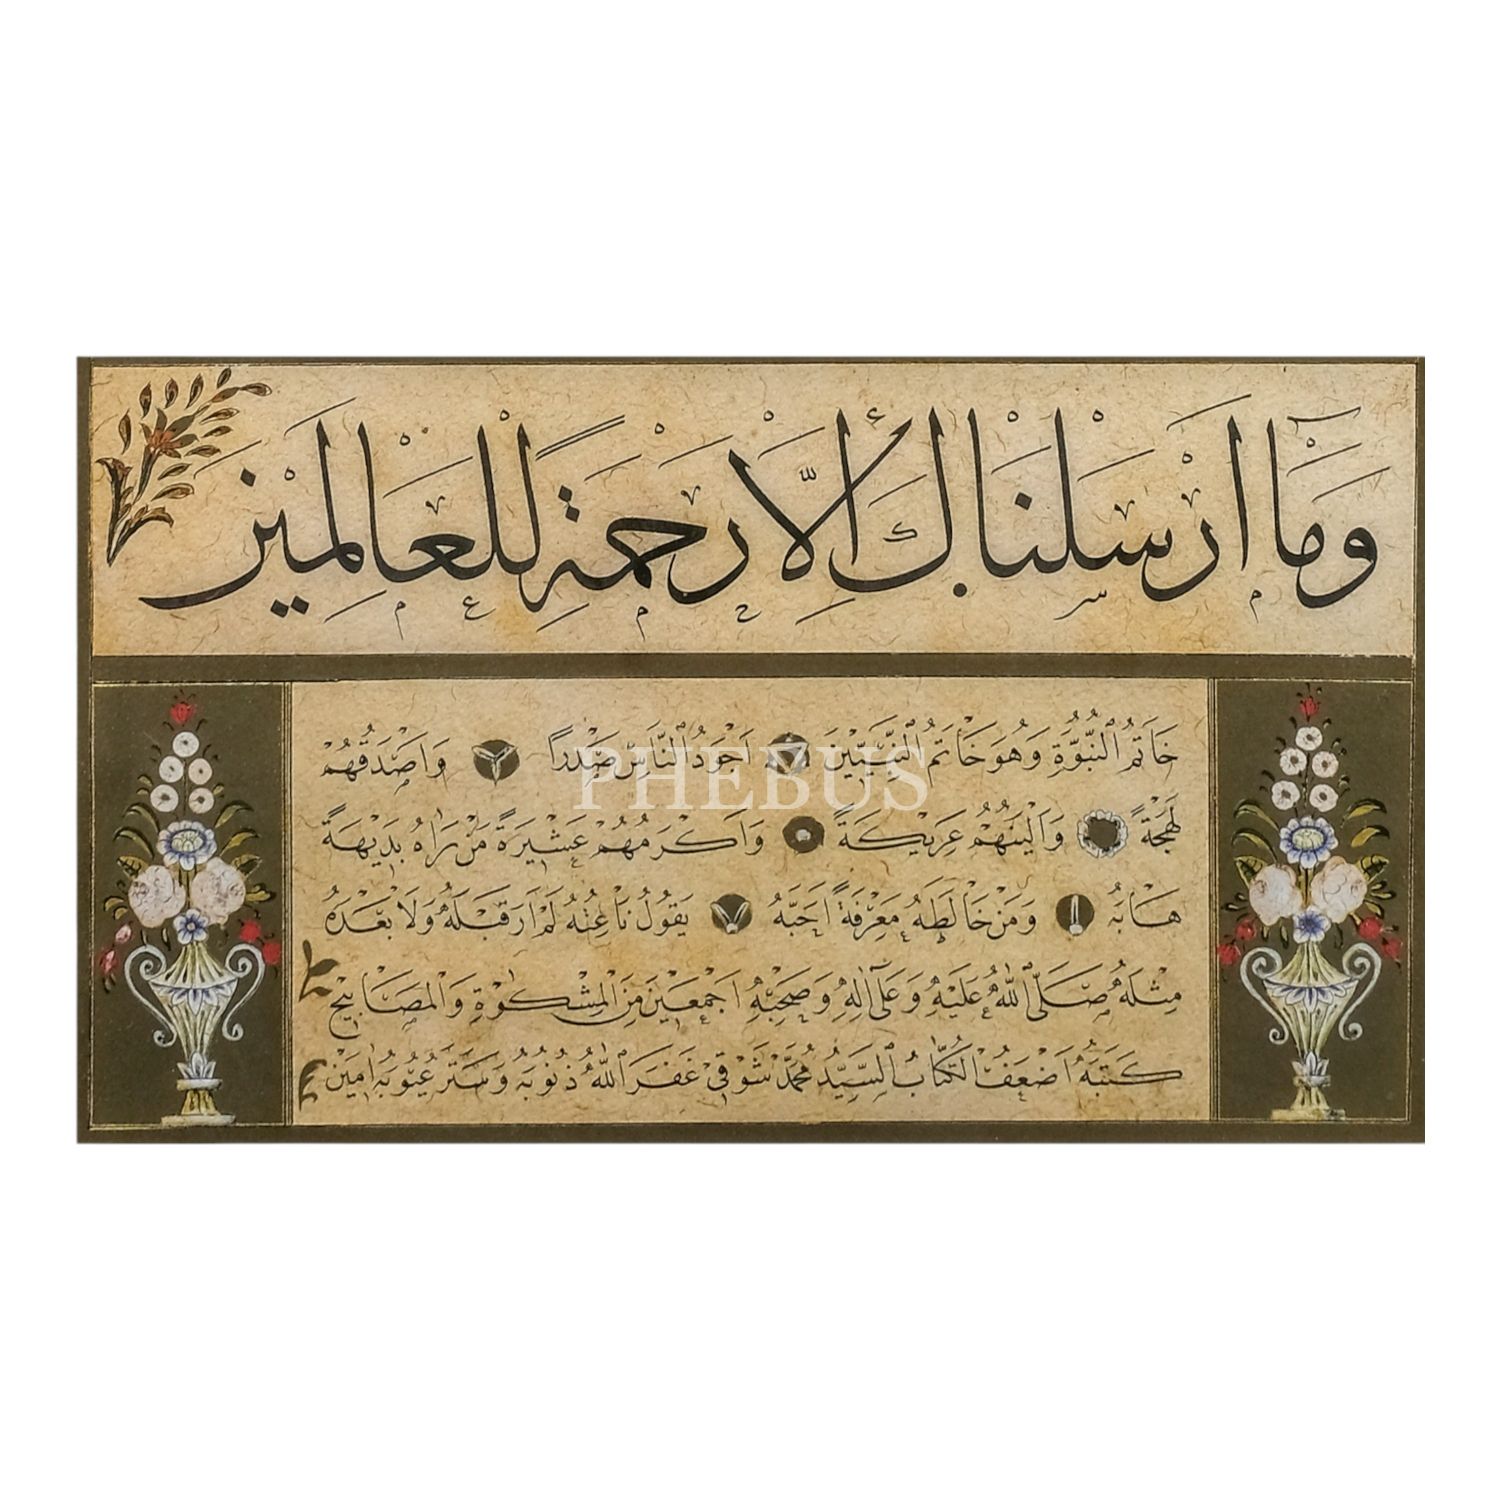 وَمَٓا اَرْسَلْنَاكَ اِلَّا رَحْمَةً لِلْعَالَمِينَ
خَاتَمُ النُّبُوَّةِ وَهُوَ خَاتَمُ النَّبِيِّينَ اَجْوَدُ النَّاسِ صَدْرًا وَاَصْدَقُهُمْ
لَهْجَةً وَاَلْيَنُهُمْ عَرِيكَةً وَاَكْرَمُهُمْ عَشِيرَةً مَنْ رَاٰهُ بَدِيهَةً
هَابَهُ وَمَنْ خَالَطَهُ مَعْرِفَةً اَحَبَّهُ يَقُولُ نَاعِتُهُ لَمْ اَرَ قَبْلَهُ وَلَا بَعْدَهُ
مِثْلَهُ صَلَّى اللّٰهُ عَلَيْهِ وَعَلٰٓى اٰلِهِ وَصَحْبِهِ اَجْمَعِينَ مِنَ الْمِشْكٰوةِ وَالْمَصَابِيحِ
كَتَبَهُ اَضْعَفُ الْكُتَّابِ السَّيِّدُ مُحَمَّدْ شَوْقِي غَفَرَ اللّٰهُ ذُنُوبَهُ وَسَتَرَ عُيُوبَهُ اٰمِينْ
PHEBUS